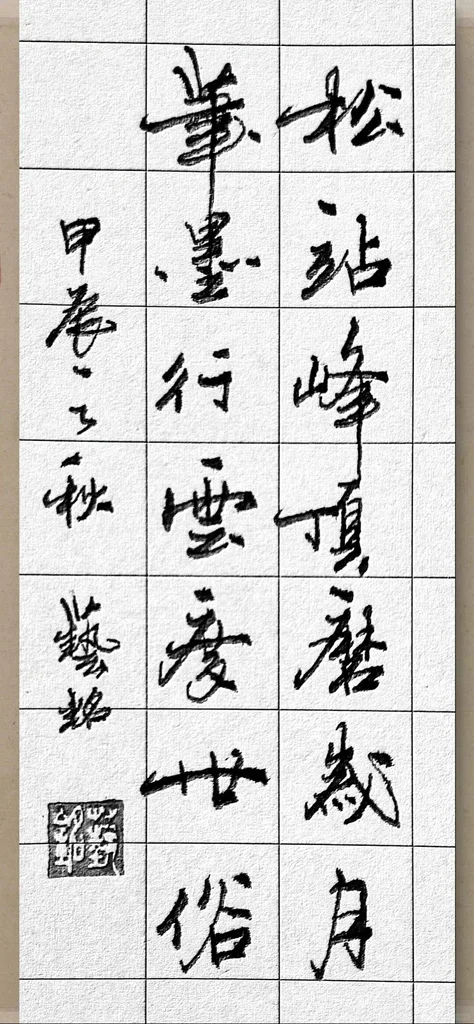 松站峰頂磨歲月
筆墨行雲度世俗
甲辰之秋 藝銘
藝銘